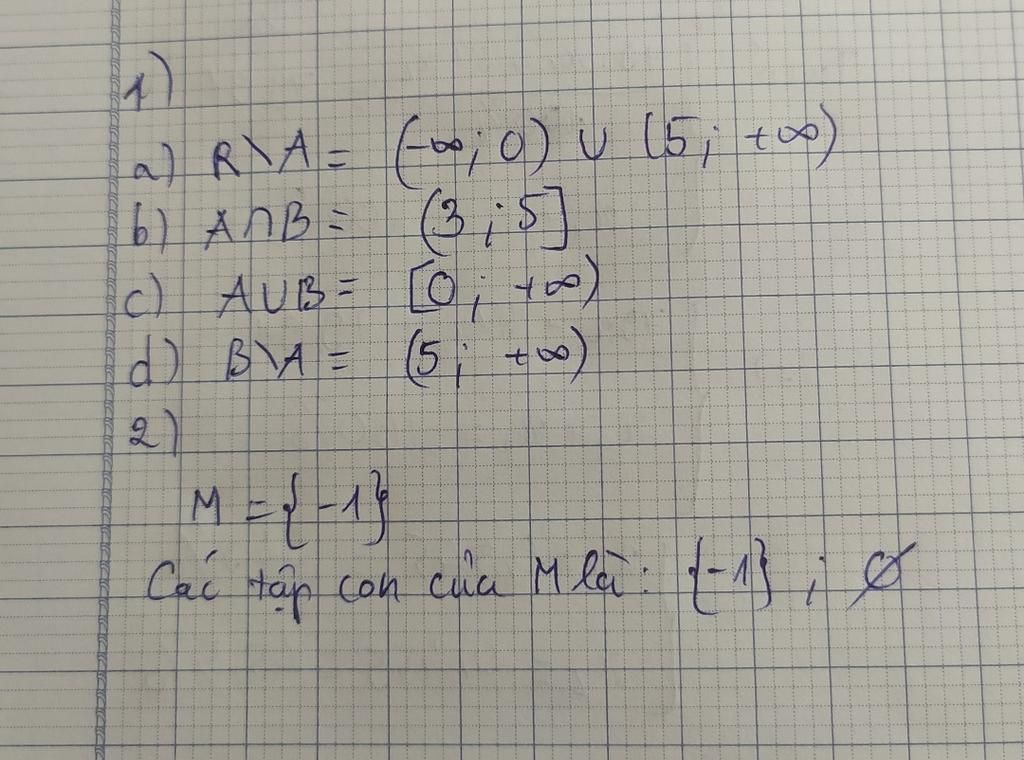 1)
a) R\A = (-∞; 0) ∪ (5; +∞)
b) A∩B = (3; 5]
c) A∪B = [0; +∞)
d) B\A = (5; +∞)
2)
M = {-1}
Các tập con của M là: {-1} ; ∅